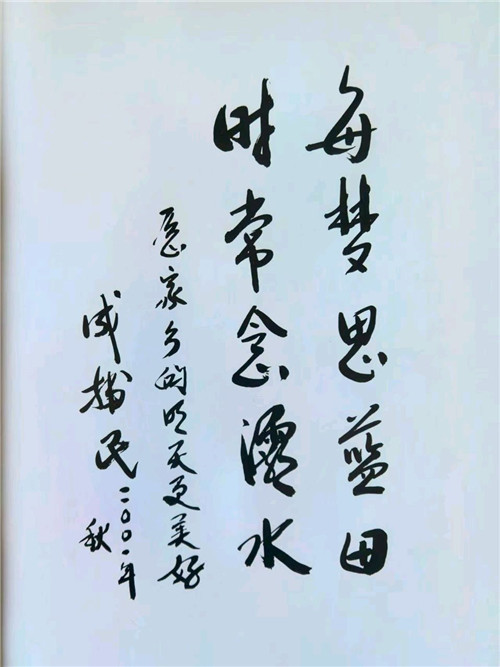 每梦思蓝田
时常念灞水
愿家乡的明天更美好
成民二〇〇一年
秋